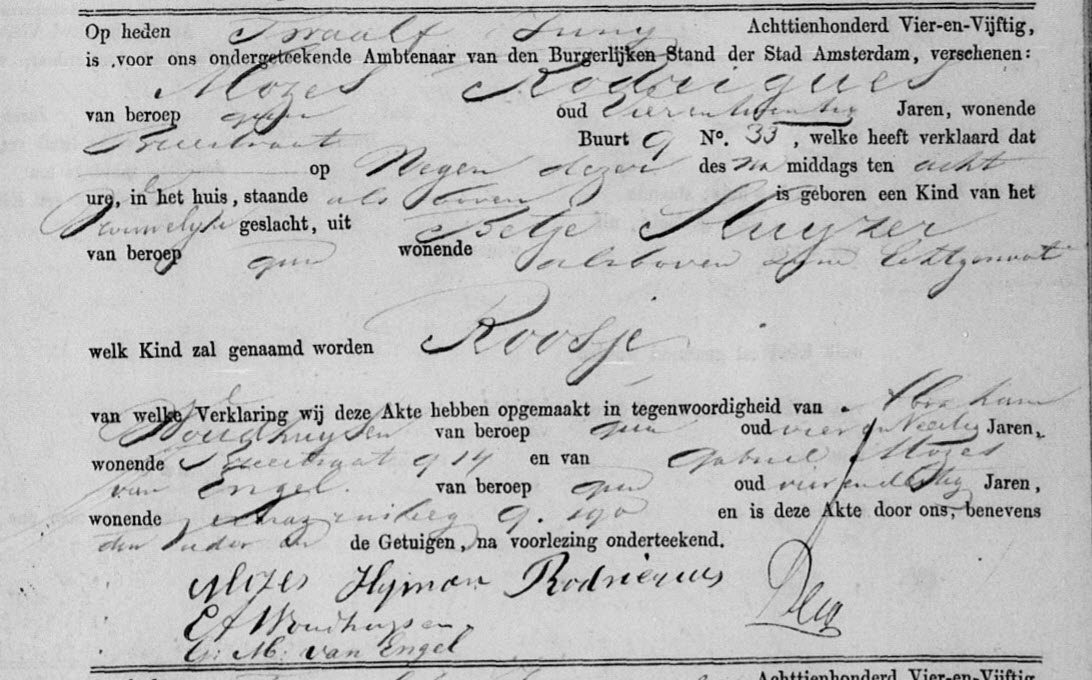 Op heden Twaalf Juny Achttienhonderd Vier-en-Vijftig,
is voor ons ondergeteekende Ambtenaar van den Burgerlijken Stand der Stad Amsterdam, verschenen:
Mozes Rodrigues
van beroep geen oud vierentwintig Jaren, wonende
Breestraat Buurt 9 No. 33, welke heeft verklaard dat
op Negen dezer des na middags ten acht
ure, in het huis, staande als boven is geboren een Kind van het
Vrouwelyke geslacht, uit Betje Kuyzer
van beroep geen wonende alsboven zyne Echtgenoot
welk Kind zal genaamd worden Roosje
van welke Verklaring wij deze Akte hebben opgemaakt in tegenwoordigheid van Abraham
Woudhuysen van beroep geen oud vier en Veertig Jaren,
wonende Breestraat 9 14 en van Gabriel Mozes
van Engel. van beroep geen oud vierendertig Jaren,
wonende 9. 190 en is deze Akte door ons, benevens
den Vader en de Getuigen, na voorlezing onderteekend.
Mozes Hyman Rodrigues
Woudhuysen
G: M: van Engel
Achttienhonderd Vier-en-Vijftig